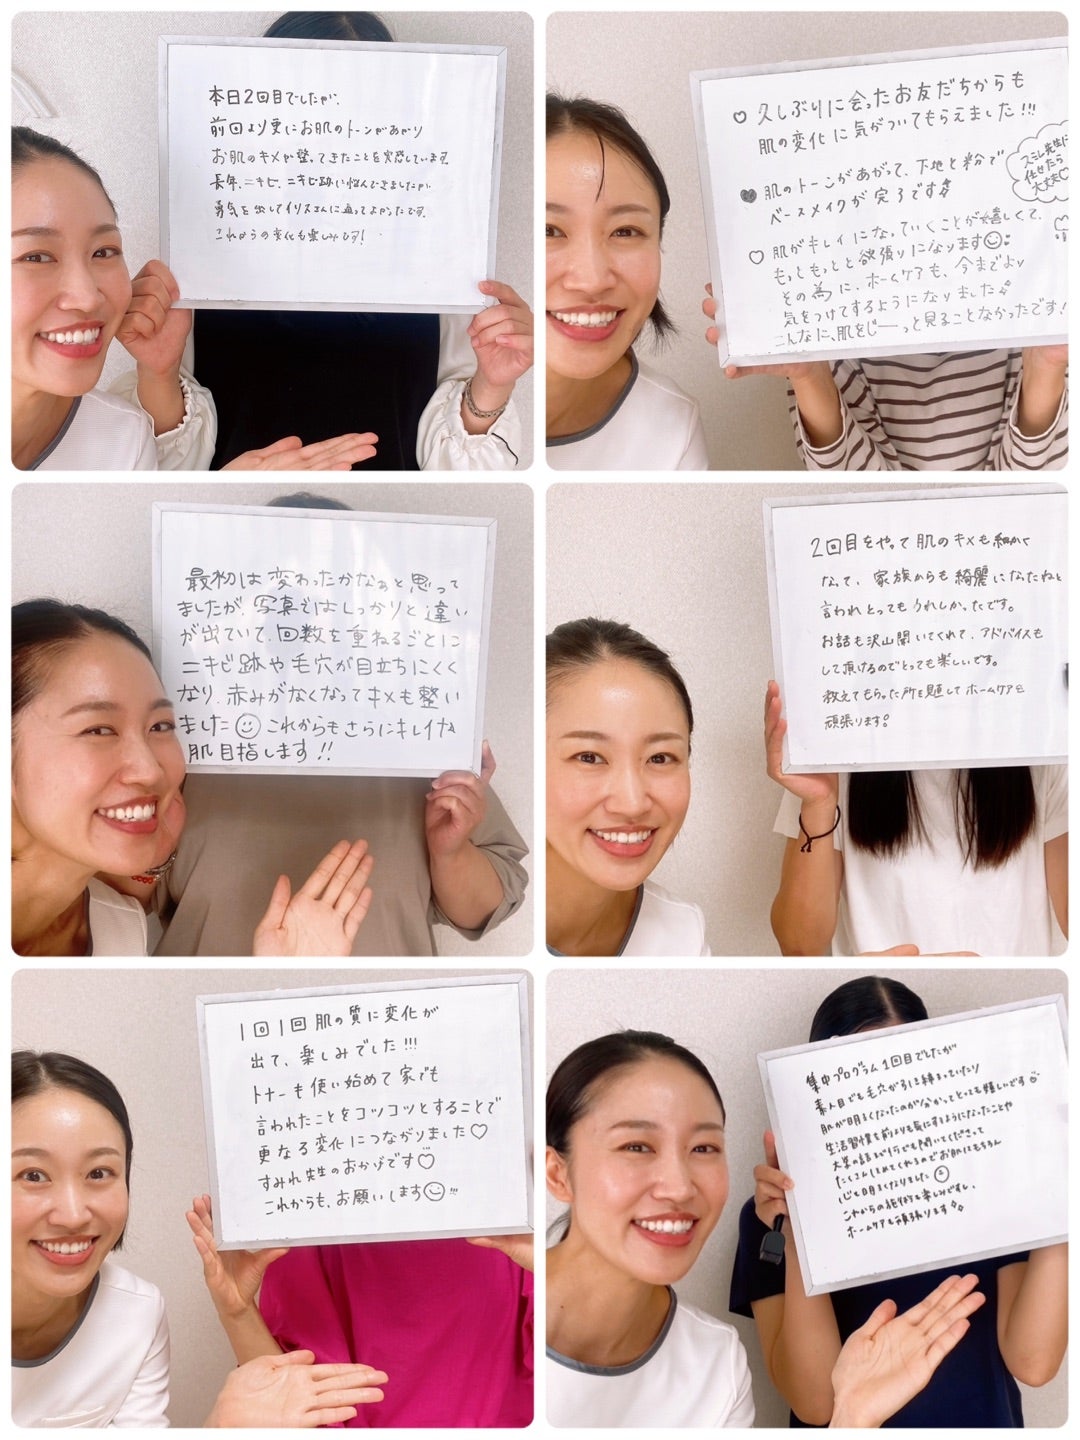 本日2回目でしたが、
前回より更にお肌のトーンがあがり
お肌のキメが整ってきたことを実感しています。
長年、ニキビ、ニキビ跡に悩んできましたが
勇気を出してイリスさんに通ってよかったです。
これからの変化も楽しみです!
♡ 久しぶりに会ったお友だちからも
肌の変化に気がついてもらえました!!!
スミレ先生に
任せたら
大丈夫♡
♥ 肌のトーンがあがって、下地と粉で
ベースメイクが完了です
♡ 肌がキレイになっていくことが嬉しくて、
もっともっとと欲張りになります
その為に、ホームケアも、今までより
気をつけてするようになりました
こんなに、肌をじーっと見ることなかったです!
最初は変わったかなぁと思って
ましたが、写真ではしっかりと違い
が出ていて、回数を重ねるごとに
ニキビ跡や毛穴が目立ちにくく
なり、赤みがなくなってキメも整い
ました☺これからもさらにキレイな
肌目指します!!
2回目をやって肌のキメも細かく
なって、家族からも綺麗になったねと
言われとってもうれしかったです。
お話も沢山聞いてくれて、アドバイスも
して頂けるのでとっても楽しいです。
教えてもらった所を意識してホームケアも
頑張ります。
1回1回肌の質に変化が
出て、楽しみでした!!!
トナーも使い始めて家でも
言われたことをコツコツとすることで
更なる変化につながりました♡
すみれ先生のおかげです♡
これからも、お願いします☺!!!
集中プログラム1回目でしたが
素人目でも毛穴が引き締まっていたり
肌が明るくなったのが分かってとっても嬉しいです
生活習慣を前よりも気にするようになったことや
大学の話まで何でも聞いてくださって
たくさんほめてくれるのでお肌にもちろん
心も明るくなりました☺
これからの施術も楽しみですし、
ホームケアも頑張ります